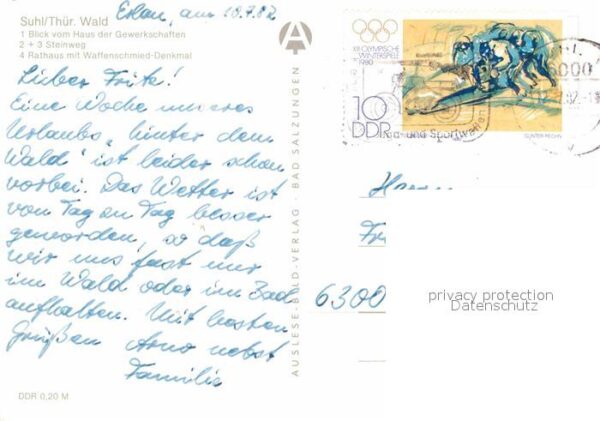 Suhl/Thür. Wald
1 Blick vom Haus der Gewerkschaften
2 + 3 Steinweg
4 Rathaus mit Waffenschmied-Denkmal
Erlau, am 10.7.82
Lieber Fritz!
Eine Woche unseres
Urlaubs "hinter dem
Wald" ist leider schon
vorbei. Das Wetter ist
von Tag zu Tag besser
geworden, so daß
wir uns fast nur
im Wald oder im Bad
aufhalten. Mit besten
Grüßen Arno nebst
Familie
DDR 0,20 M
AUSLESE-BILD-VERLAG · BAD SALZUNGEN
A
XIII. OLYMPISCHE
WINTERSPIELE
1980
10
DDR
und Sportwaffen
GÜNTER RECHN
6000
82
Fr
6300
privacy protection
Datenschutz